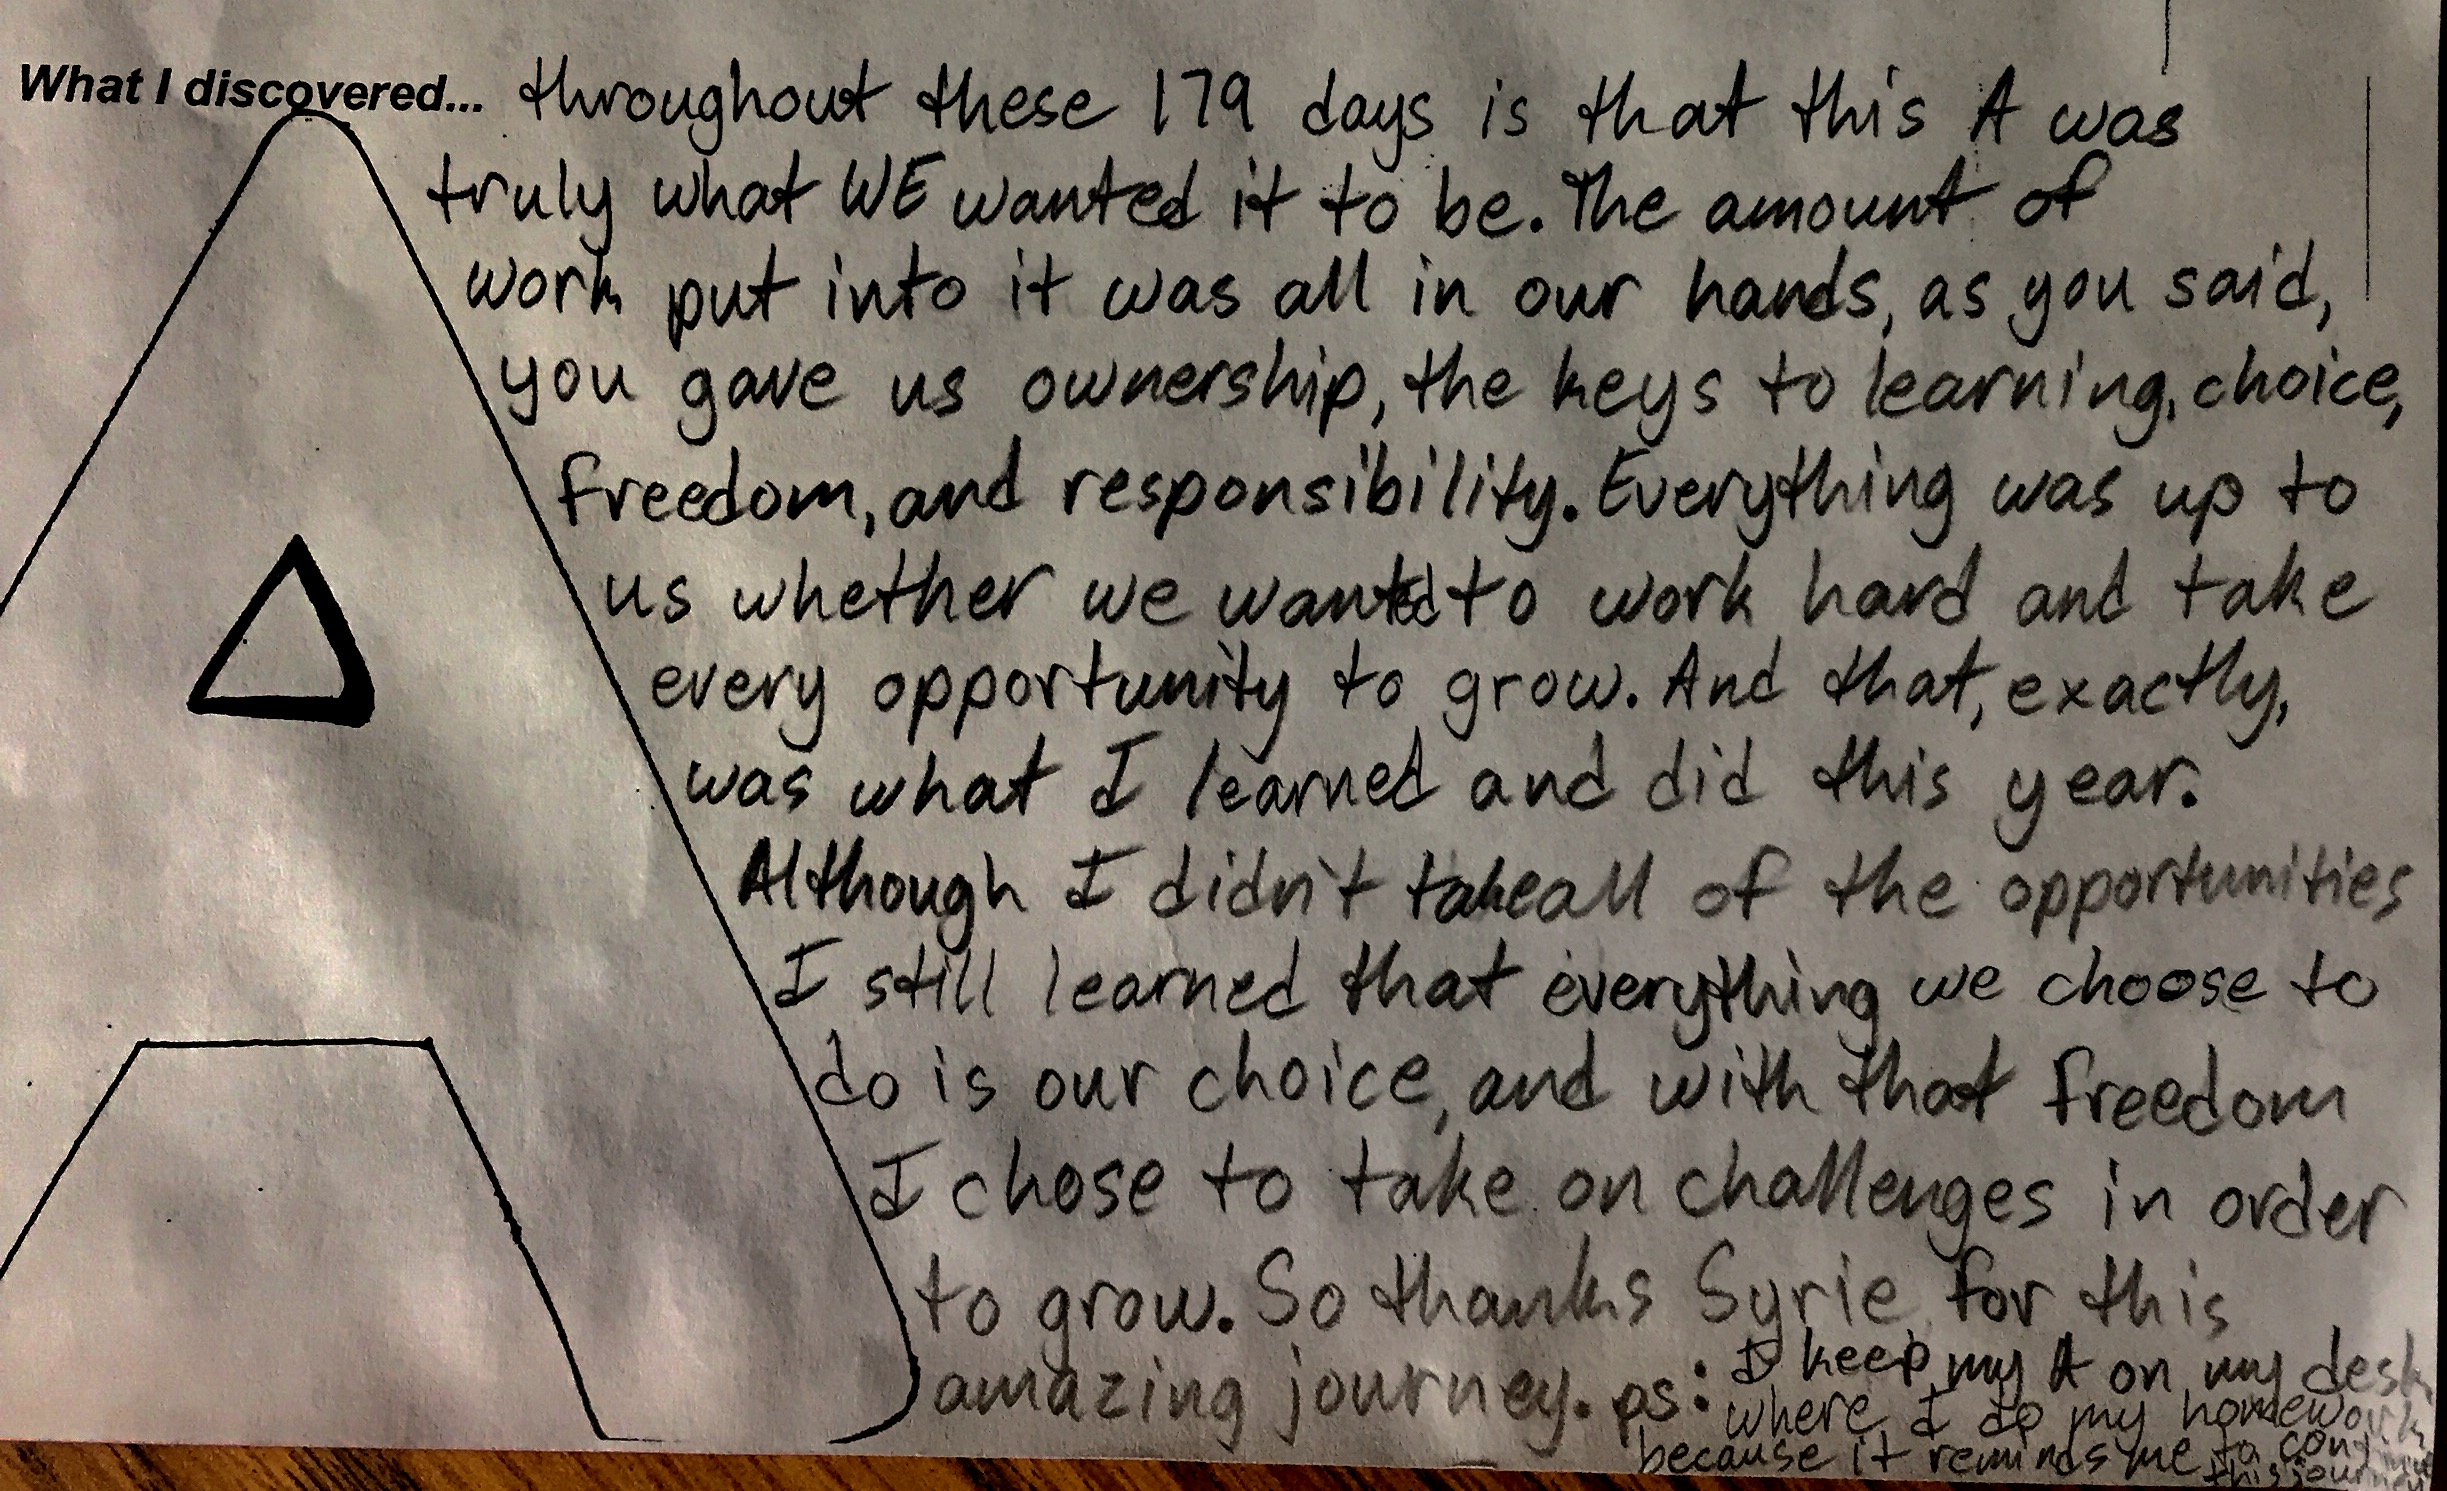 What I discovered... throughout these 179 days is that this A was
truly what WE wanted it to be. The amount of
work put into it was all in our hands, as you said,
you gave us ownership, the keys to learning, choice,
freedom, and responsibility. Everything was up to
us whether we wanted to work hard and take
every opportunity to grow. And that, exactly,
was what I learned and did this year.
Although I didn't take all of the opportunities
I still learned that everything we choose to
do is our choice, and with that freedom
I chose to take on challenges in order
to grow. So thanks Syrie for this
amazing journey. ps: I keep my A on my desk
where I do my homework
because it reminds me to continue
this journey